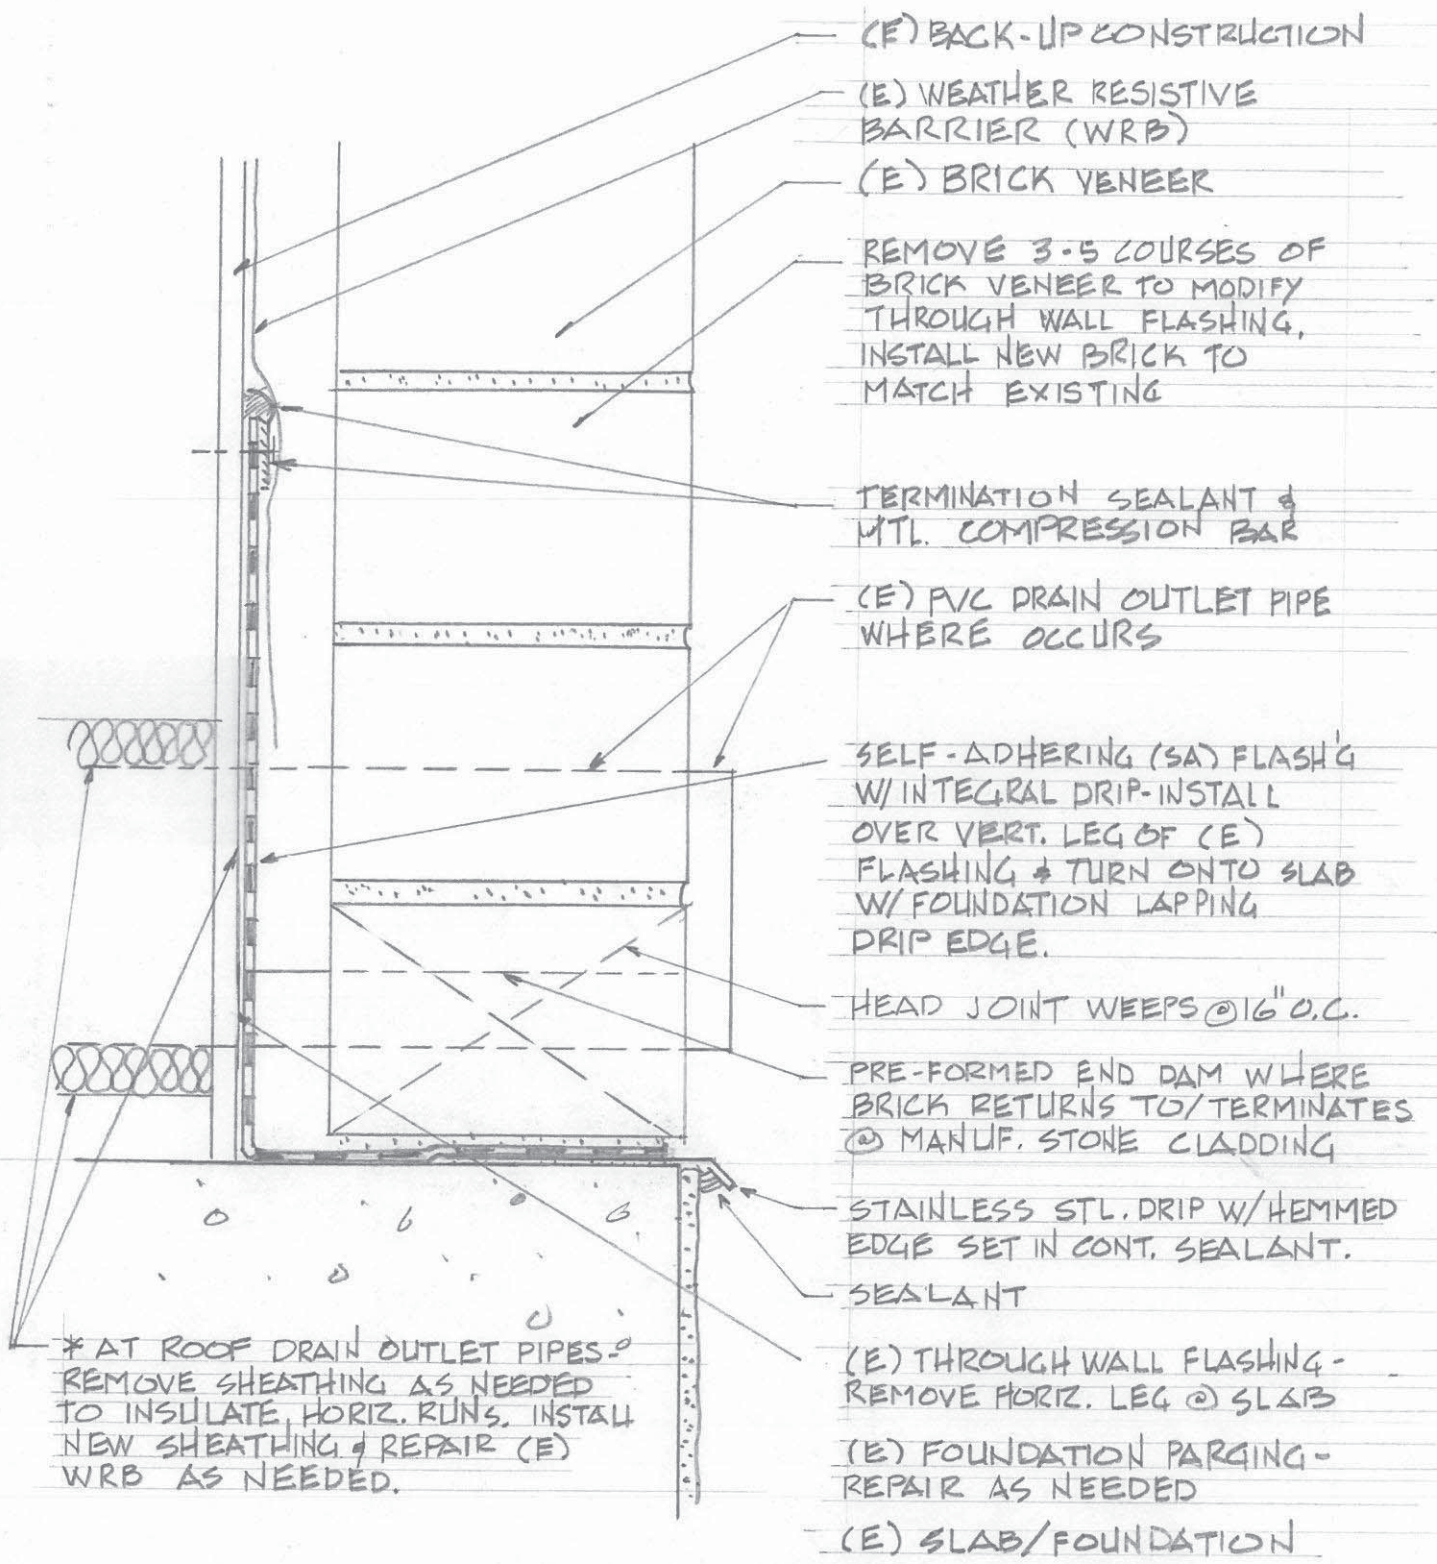 (E) BACK-UP CONSTRUCTION
(E) WEATHER RESISTIVE
BARRIER (WRB)
(E) BRICK VENEER
REMOVE 3-5 COURSES OF
BRICK VENEER TO MODIFY
THROUGH WALL FLASHING,
INSTALL NEW BRICK TO
MATCH EXISTING
TERMINATION SEALANT &
MTL. COMPRESSION BAR
(E) PVC DRAIN OUTLET PIPE
WHERE OCCURS
SELF-ADHERING (SA) FLASH'G
W/ INTEGRAL DRIP-INSTALL
OVER VERT. LEG OF (E)
FLASHING & TURN ONTO SLAB
W/ FOUNDATION LAPPING
DRIP EDGE.
HEAD JOINT WEEPS @ 16" O.C.
PRE-FORMED END DAM WHERE
BRICK RETURNS TO/TERMINATES
@ MANUF. STONE CLADDING
STAINLESS STL. DRIP W/HEMMED
EDGE SET IN CONT. SEALANT.
SEALANT
(E) THROUGH WALL FLASHING-
REMOVE HORIZ. LEG @ SLAB
(E) FOUNDATION PARGING-
REPAIR AS NEEDED
(E) SLAB/FOUNDATION
* AT ROOF DRAIN OUTLET PIPES-
REMOVE SHEATHING AS NEEDED
TO INSULATE HORIZ. RUNS. INSTALL
NEW SHEATHING & REPAIR (E)
WRB AS NEEDED.